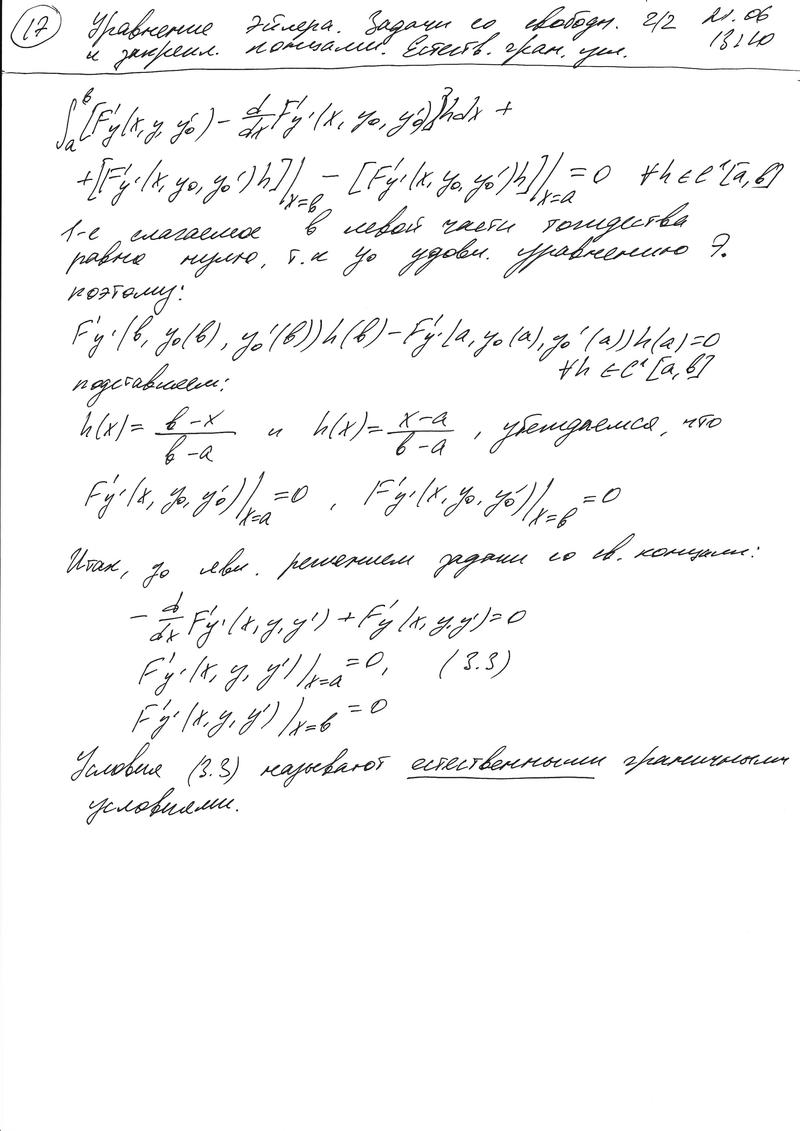 17 Уравнение Эйлера. Задачи со свободн. 2/2 21.06
и закрепл. концами. Естеств. гран. усл. 13:10
∫ₐᵇ [F'y(x, y, y₀') − d/dx F'y'(x, y₀, y₀')] h dx +
+ [F'y'(x, y₀, y₀')h]|x=в − [F'y'(x, y₀, y₀')h]|x=a = 0 ∀h ∈ C¹[a, в]
1-е слагаемое в левой части тождества
равно нулю, т.к y₀ удовл. уравнению Э.
поэтому:
F'y'(в, y₀(в), y₀'(в))h(в) − F'y'(a, y₀(a), y₀'(a))h(a) = 0
∀h ∈ C¹[a, в]
подставляем:
h(x) = (в − x)/(в − a) и h(x) = (x − a)/(в − a), убеждаемся, что
F'y'(x, y₀, y₀')|x=a = 0, F'y'(x, y₀, y₀')|x=в = 0
Итак, y₀ явл. решением задачи со св. концами:
− d/dx F'y'(x, y, y') + F'y(x, y, y') = 0
F'y'(x, y, y')|x=a = 0, (3.3)
F'y'(x, y, y')|x=в = 0
Условия (3.3) называют естественными граничными
условиями.